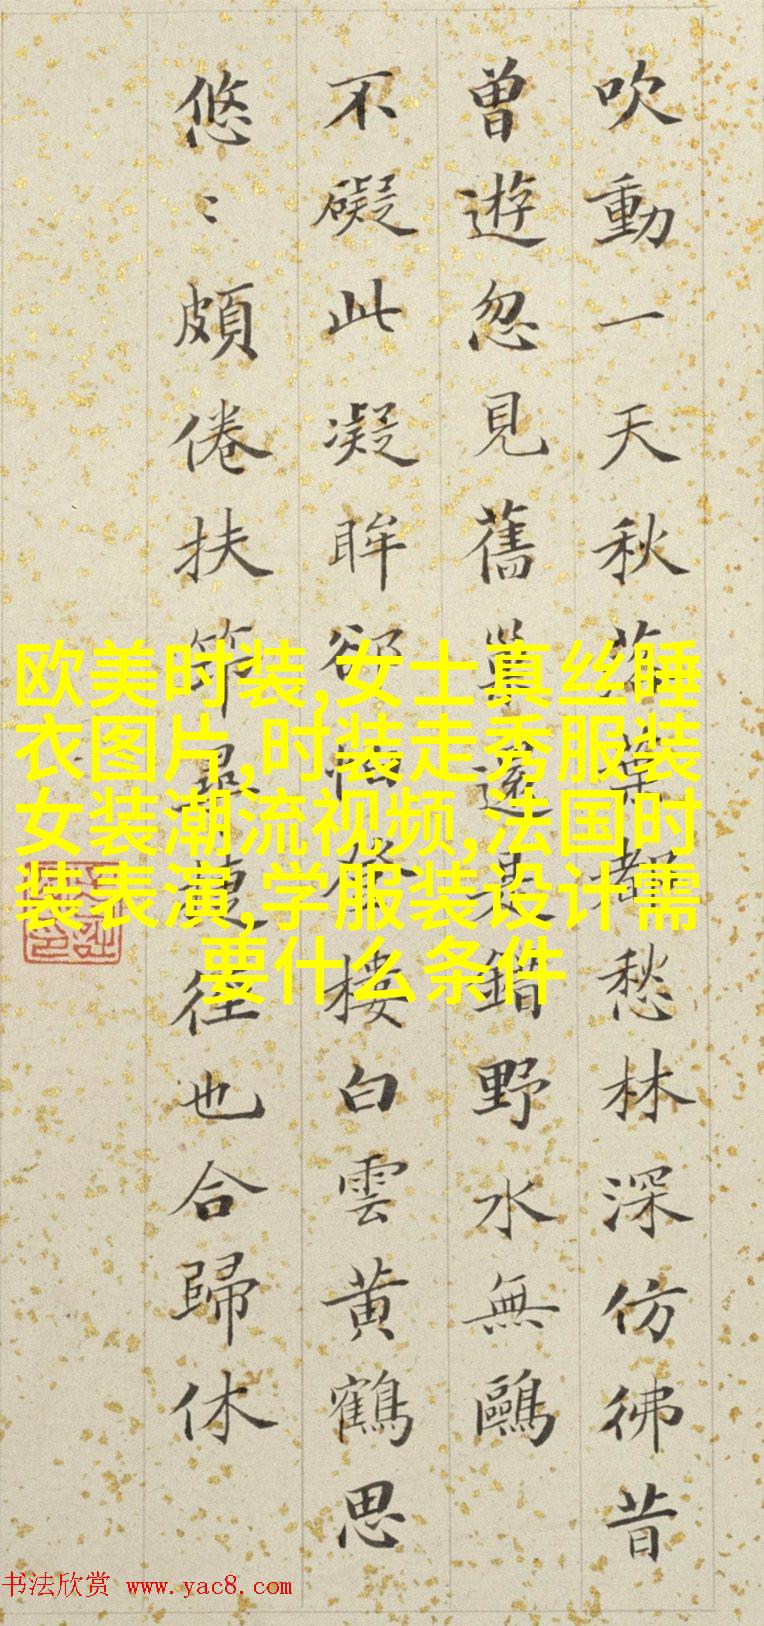 吹動一天秋落葉都愁林深仿彿昔
曾遊忽見舊巢是錯野水無鷗
不礙此凝眸卻怕登樓白雲黃鶴思
悠〻頗倦扶筇尋捷徑也合歸休
欧美时装,女士真丝睡
衣图片,时装走秀服装
女装潮流视频,法国时
装表演,学服装设计需
要什么条件
书法欣赏 www.yac8.com